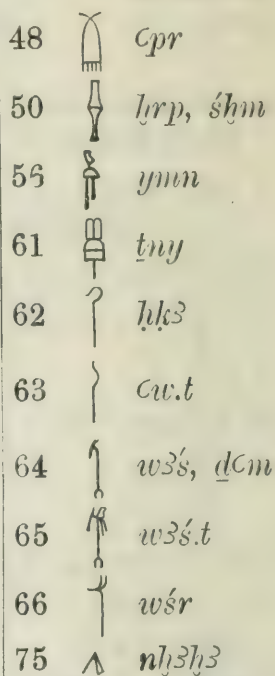 48 ꜥpr
50 ḫrp, śḫm
56 ymn
61 ṯny
62 ḥḳꜣ
63 ꜥw.t
64 wꜣś, ḏꜥm
65 wꜣś.t
66 wśr
75 nḫꜣḫꜣ